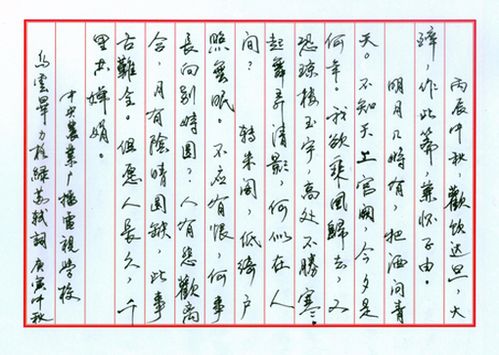 丙辰中秋，歡飲达旦，大
醉，作此篇，兼怀子由。
明月几時有，把酒问青
天。不知天上宫闕，今夕是
何年。我欲乘風歸去，又
恐琼楼玉宇，高处不勝寒。
起舞弄清影，何似在人
间？ 转朱阁，低绮户
照無眠。不应有恨，何事
長向别時圆？人有悲歡離
合，月有陰晴圆缺，此事
古難全。但愿人長久，千
里共婵娟。
中央農業广播電視学校
烏雲畢力格録蘇軾詞 庚寅中秋